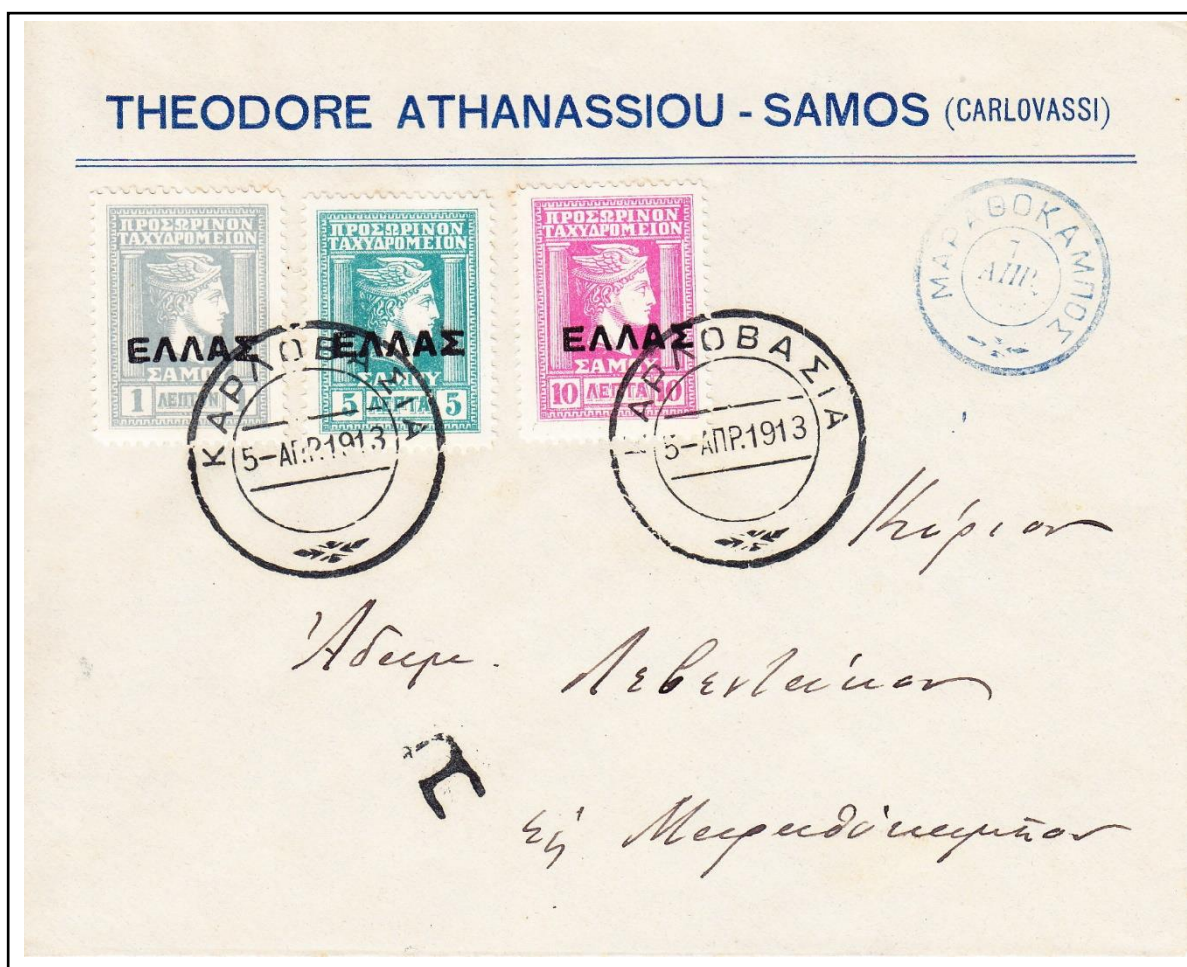 THEODORE ATHANASSIOU - SAMOS (CARLOVASSI)
ΠΡΟΣΩΡΙΝΟΝ
ΤΑΧΥΔΡΟΜΕΙΟΝ
ΕΛΛΑΣ
ΣΑΜΟΥ
1 ΛΕΠΤΟΝ
ΠΡΟΣΩΡΙΝΟΝ
ΤΑΧΥΔΡΟΜΕΙΟΝ
ΕΛΛΑΣ
ΣΑΜΟΥ
5 ΛΕΠΤΑ 5
ΠΡΟΣΩΡΙΝΟΝ
ΤΑΧΥΔΡΟΜΕΙΟΝ
ΕΛΛΑΣ
ΣΑΜΟΥ
10 ΛΕΠΤΑ 10
ΜΑΡΑΘΟΚΑΜΠΟΣ
7
ΑΠΡ.
ΚΑΡΛΟΒΑΣΙΑ
5-ΑΠΡ.1913
ΚΑΡΛΟΒΑΣΙΑ
5-ΑΠΡ.1913
Κύριον
Ἀδαμ. Λεβεντάκον
εἰς Μαραθόκαμπον